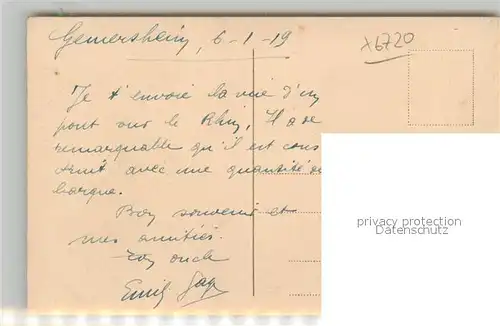 Gemersheim, 6-1-19
x6720
Je t'envoie la vue d'un
pont sur le Rhin, Il a de
remarquable qu'il est cons
truit avec une quantité de
barque.
Bon souvenir et
mes amitiés.
Ton oncle
Emile
privacy protection
Datenschutz